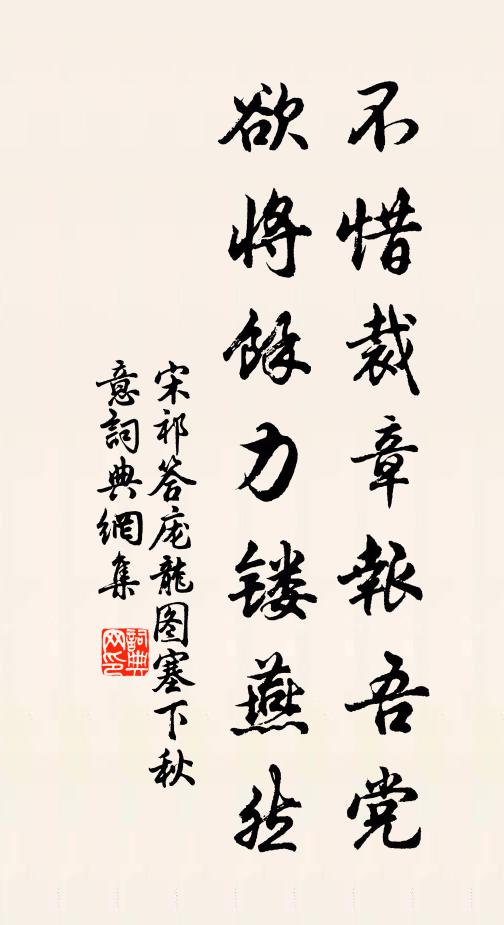 不惜裁章報吾党
欲將餘力镂燕然
宋祁答庞龍图塞下秋
意詞典網集
詞典网印